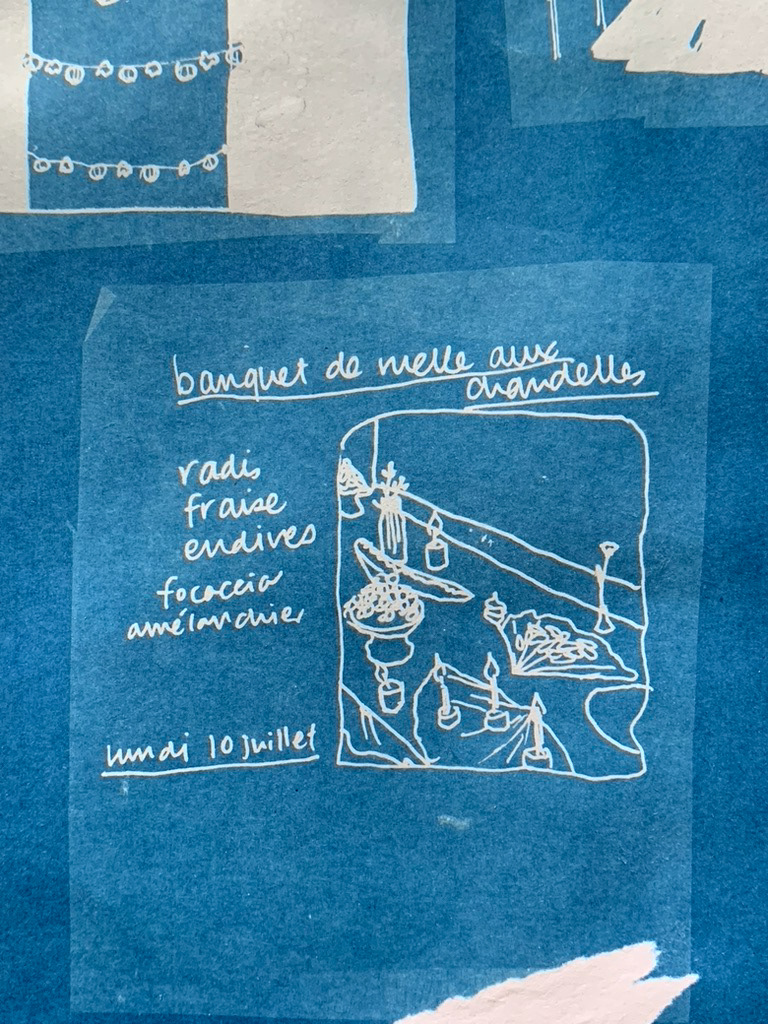 banquet de ruelle aux
chandelles
radis
fraise
endives
focaccia
amélanchier
lundi 10 juillet